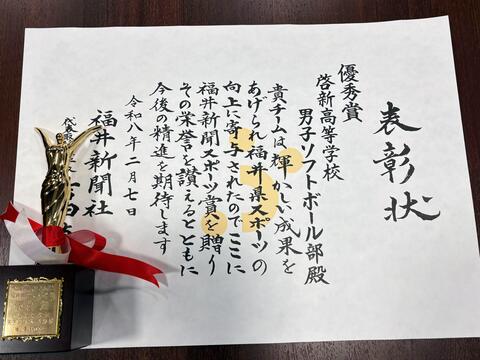 表彰状
優秀賞
啓新高等学校
男子ソフトボール部殿
貴チームは輝かしい成果を
あげられ福井県スポーツの
向上に寄与されたのでここに
福井新聞スポーツ賞を贈り
その栄誉を讃えるとともに
今後の精進を期待します
令和八年二月七日
福井新聞社